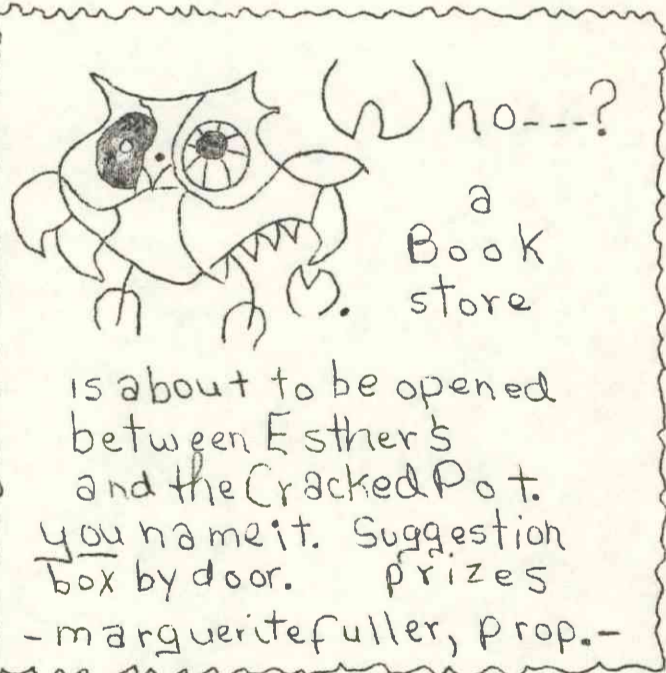 Who---?
a
Book
store
is about to be opened
between Esther's
and the Cracked Pot.
you name it. Suggestion
box by door. prizes
-margueritefuller, prop.-